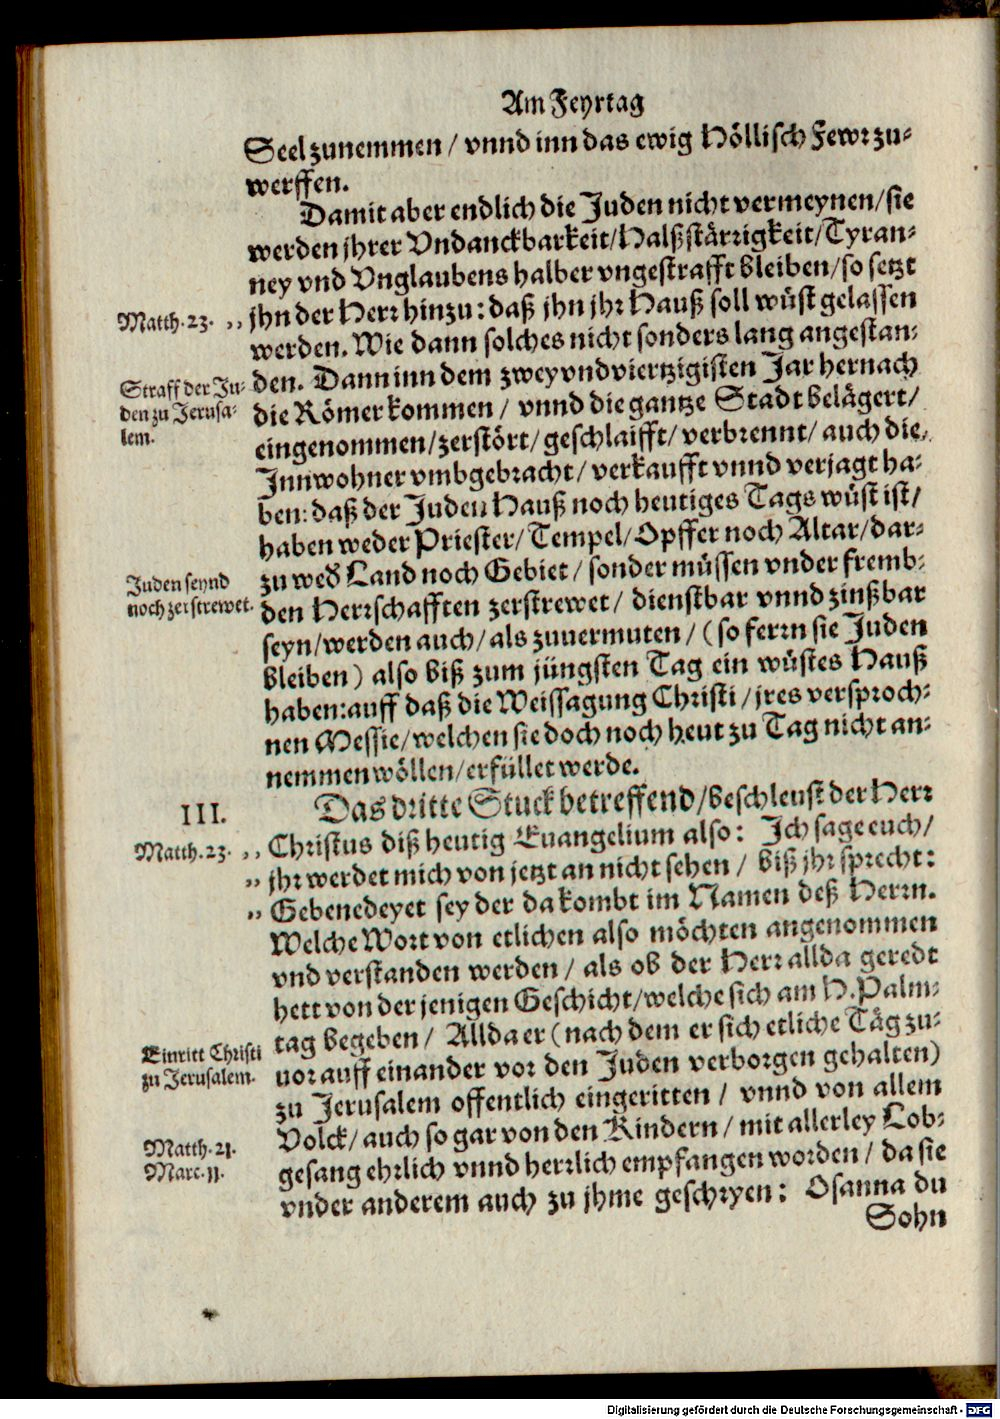 Am Feyrtag
Seel zunemmen / vnnd inn das ewig Höllisch Fewr zu-
werffen.
Damit aber endlich die Juden nicht vermeynen / sie
werden jhrer Vndanckbarkeit / Halßstärrigkeit / Tyran-
ney vnd Vnglaubens halber vngestrafft bleiben / so setzt
Matth. 23. ,, jhn der Herr hinzu: daß jhn jhr Hauß soll wüst gelassen
werden. Wie dann solches nicht sonders lang angestan-
Straff der Ju-
den zu Jerusa-
lem.
den. Dann inn dem zwey vnd viertzigisten Jar hernach
die Römer kommen / vnnd die gantze Stadt belägert /
eingenommen / zerstört / geschlaifft / verbrennt / auch die
Innwohner vmbgebracht / verkaufft vnnd verjagt ha-
ben: daß der Juden Hauß noch heutiges Tags wüst ist /
haben weder Priester / Tempel / Opffer noch Altar / dar-
Juden seynd
noch zerstrewet.
zu weď Land noch Gebiet / sonder müssen vnder fremb-
den Herrschafften zerstrewet / dienstbar vnnd zinßbar
seyn / werden auch / als zuuermuten / (so ferrn sie Juden
bleiben) also biß zum jüngsten Tag ein wüstes Hauß
haben: auff daß die Weissagung Christi / jres versproch-
nen Messie / welchen sie doch noch heut zu Tag nicht an-
nemmen wöllen / erfüllet werde.
III.
Das dritte Stuck betreffend / beschleust der Herr
Matth. 23. ,, Christus diß heutig Euangelium also: Ich sage euch /
,, jhr werdet mich von jetzt an nicht sehen / biß jhr sprecht:
,, Gebenedeyet sey der da kombt im Namen deß Herrn.
Welche Wort von etlichen also möchten angenommen
vnd verstanden werden / als ob der Herr allda geredt
hett von der jenigen Geschicht / welche sich am H. Palm-
tag begeben / Allda er (nach dem er sich etliche Täg zu-
Einritt Christi
zu Jerusalem.
uor auff einander vor den Juden verborgen gehalten)
zu Jerusalem offentlich eingeritten / vnnd von allem
Matth. 21.
Marc. 11.
Volck / auch so gar von den Kindern / mit allerley Lob-
gesang ehrlich vnnd herrlich empfangen worden / da sie
vnder anderem auch zu jhme geschryen: Osanna du
Sohn
Digitalisierung gefördert durch die Deutsche Forschungsgemeinschaft - DFG